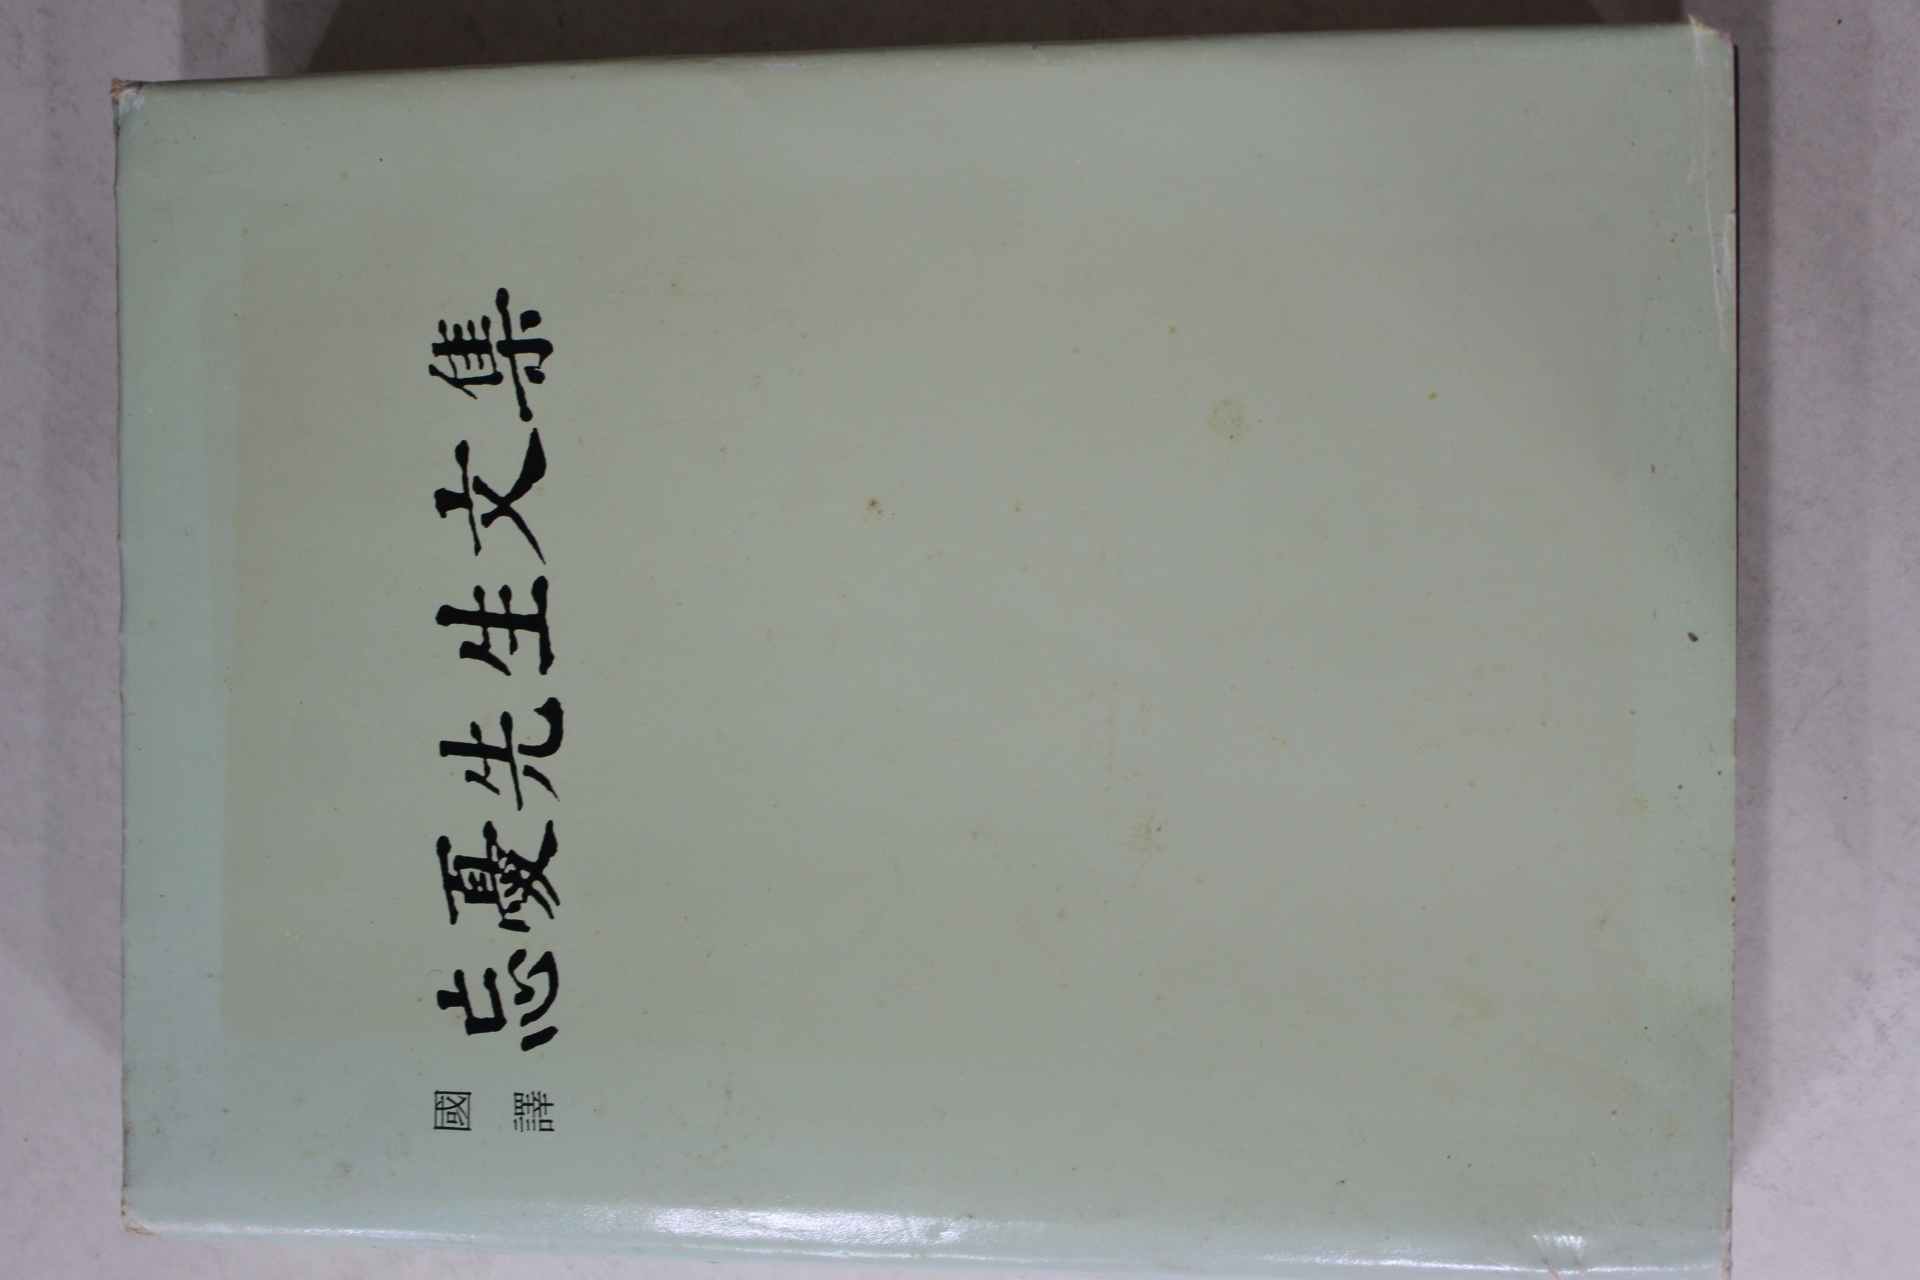 國譯
忘憂先生文集